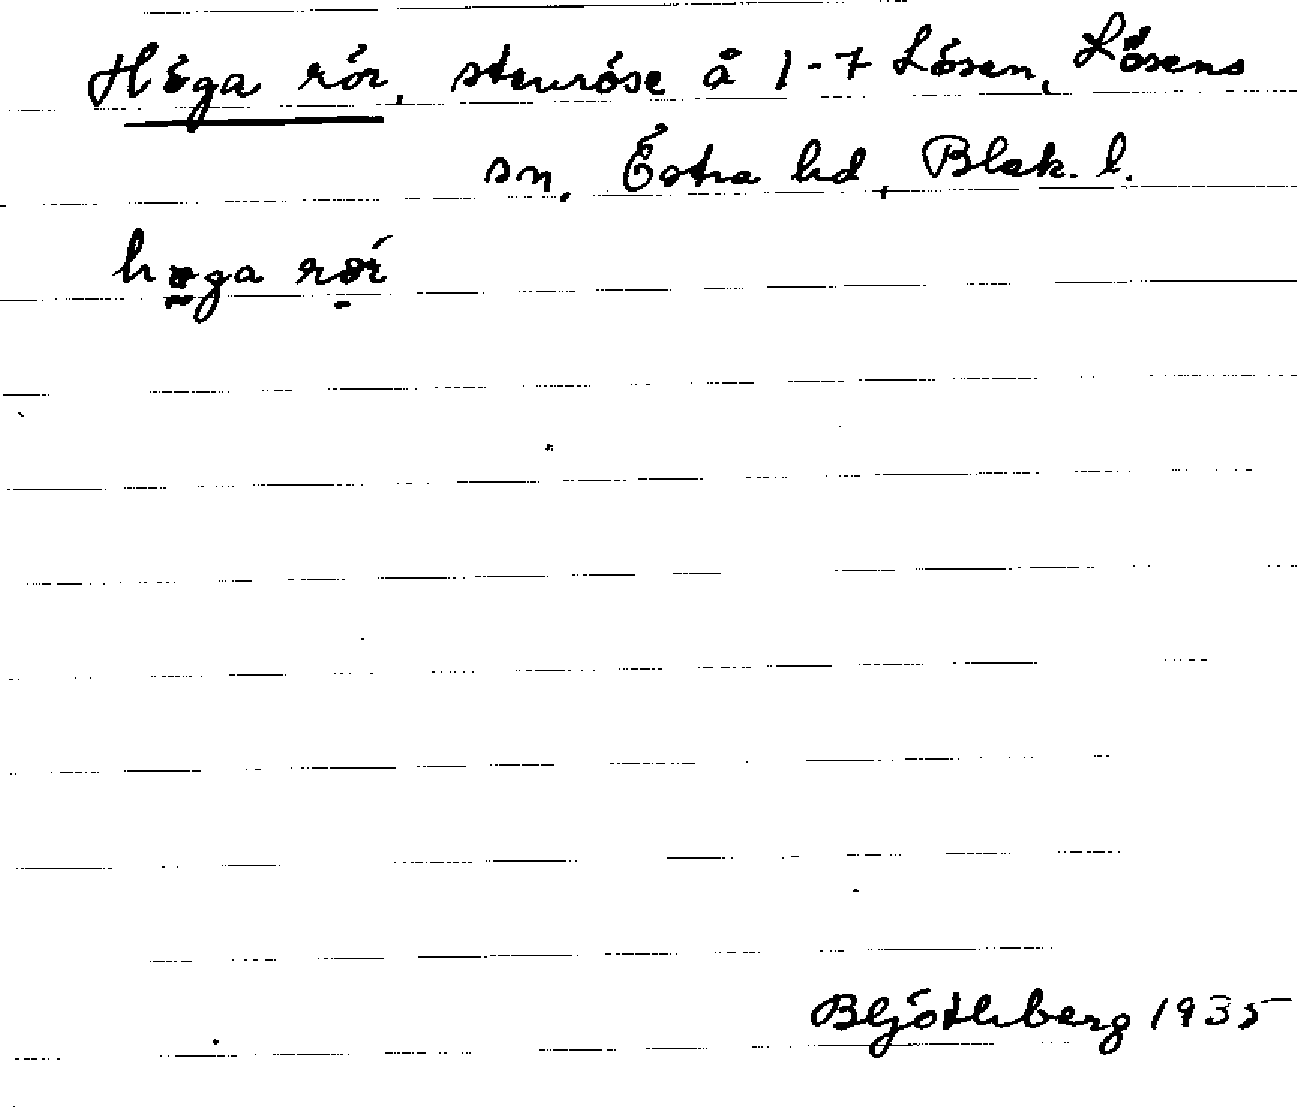 Höga rör, stenröse å 1-7 Lösen, Lösens
sn, Östra hd, Blek. l.
höga rör
1935